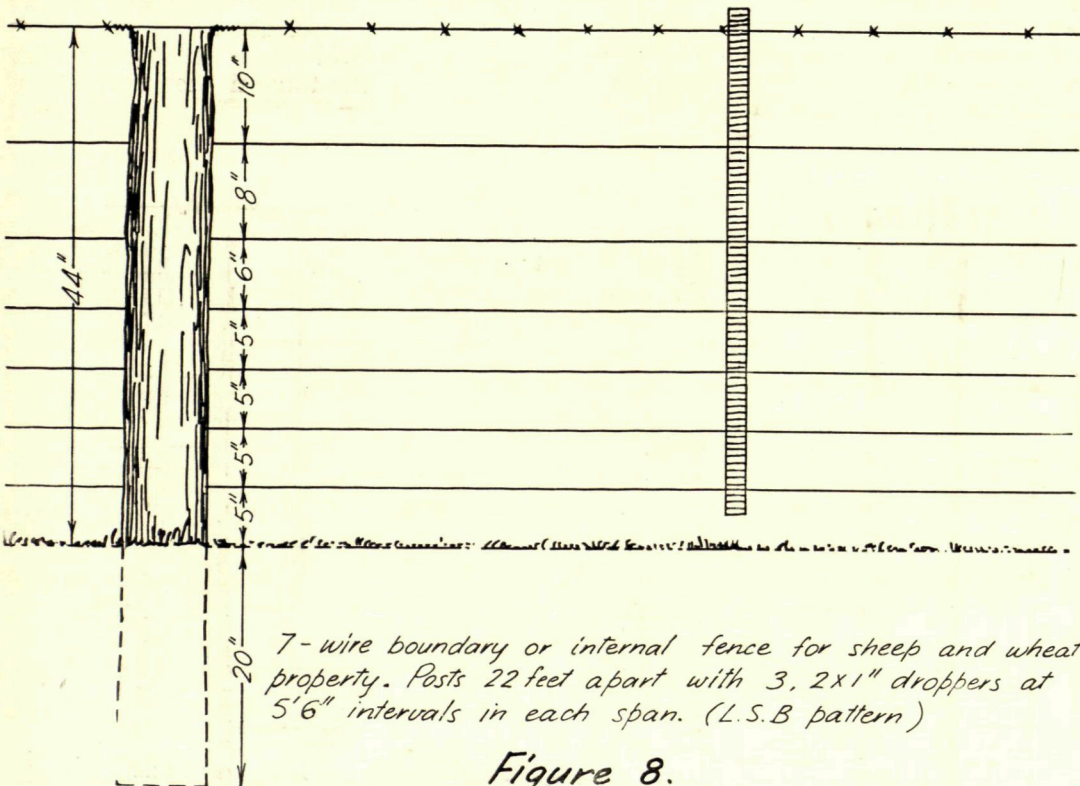 44"
10"
8"
6"
5"
5"
5"
5"
20"
7-wire boundary or internal fence for sheep and wheat
property. Posts 22 feet apart with 3, 2x1" droppers at
5'6" intervals in each span. (L.S.B pattern)
Figure 8.